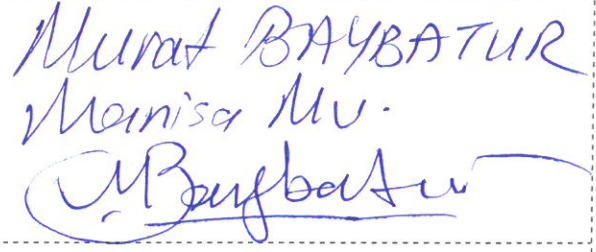 Murat BAYBATUR
Manisa Mv.
MBaybatur